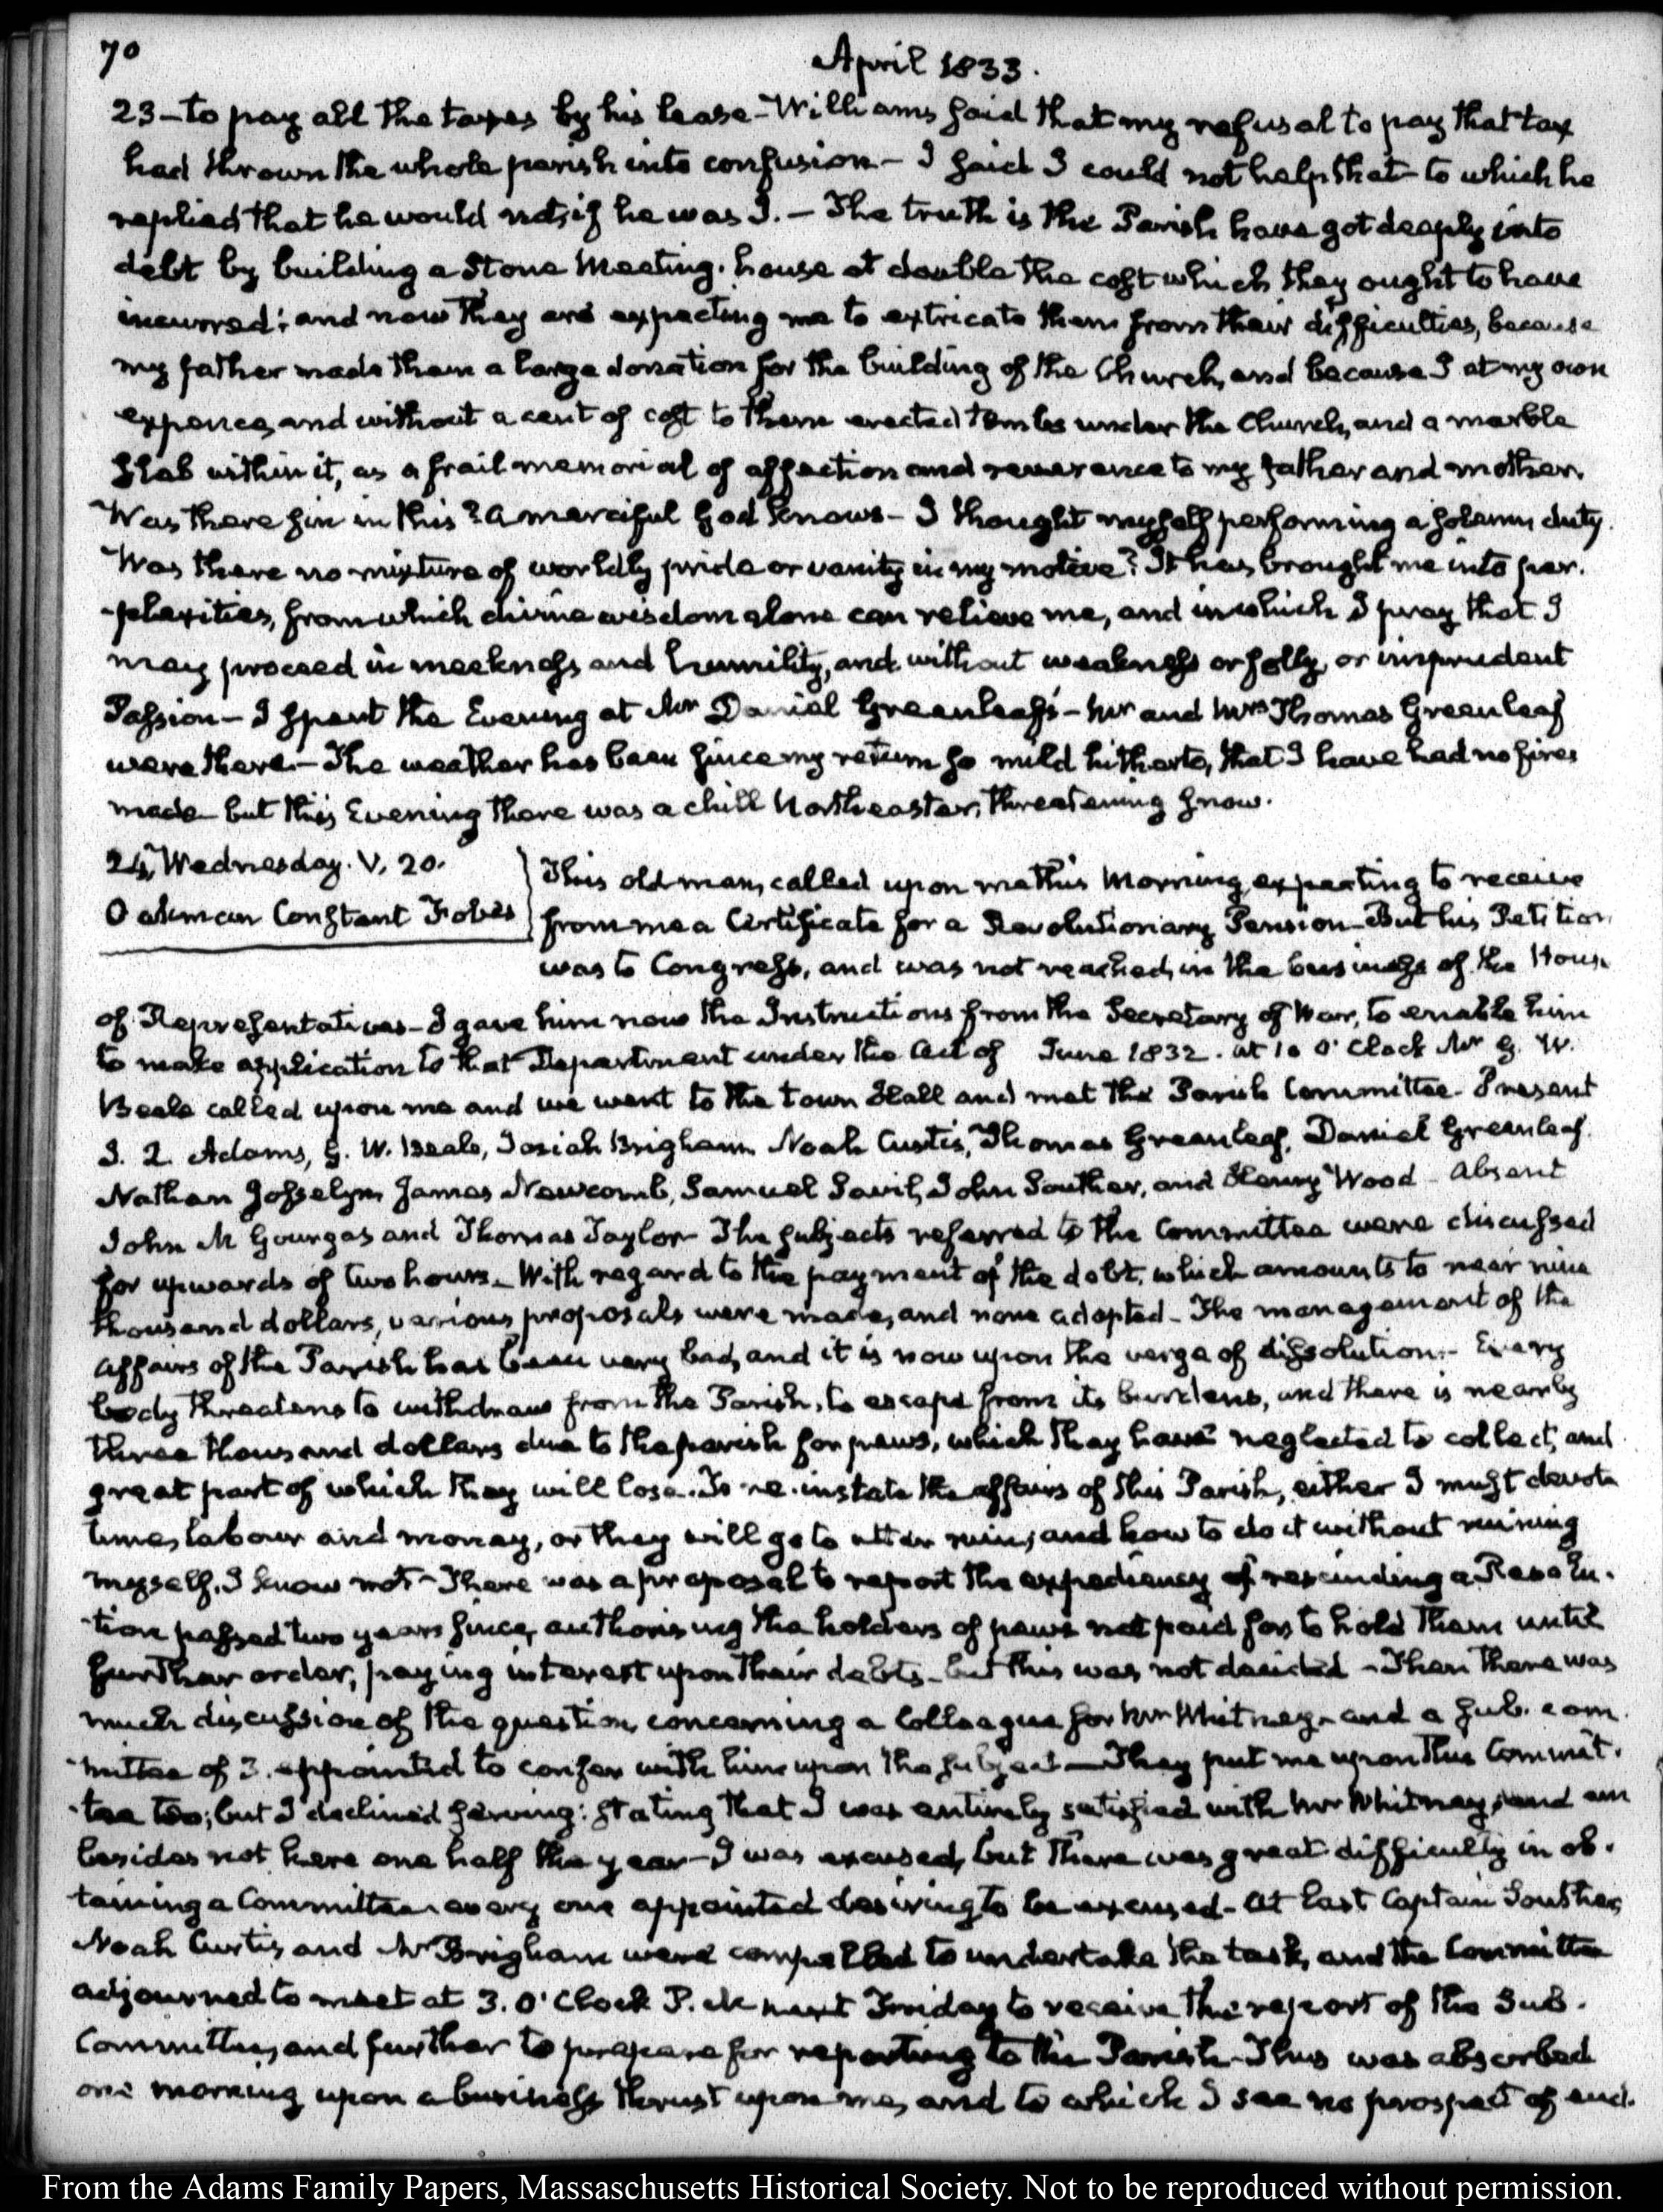 70
April 1833.
23 - to pay all the taxes by his lease - Williams said that my refusal to pay that tax
had thrown the whole parish into confusion - I said I could not help that - to which he
replied that he would not, if he was I. - The truth is the Parish have got deeply into
debt by building a Stone Meeting-house at double the cost which they ought to have
incurred; and now they are expecting me to extricate them from their difficulties, because
my father made them a large donation for the building of the Church, and because I at my own
expence, and without a cent of cost to them erected tombs under the Church, and a marble
Slab within it, as a frail memorial of affection and reverence to my father and mother.
Was there sin in this? A merciful God knows - I thought myself performing a solemn duty.
Was there no mixture of worldly pride or vanity in my motive? It has brought me into per-
-plexities, from which divine wisdom alone can relieve me, and in which I pray that I
may proceed in meekness and humility, and without weakness or folly, or imprudent
Passion - I spent the Evening at Mr Daniel Greenleaf's - Mr and Mrs Thomas Greenleaf
were there. - The weather has been since my return so mild hitherto, that I have had no fires
made - but this Evening there was a chill Northeaster, threatening snow.
24. Wednesday. V. 20.
Oakman Constant Fobes
This old man, called upon me this Morning expecting to receive
from me a Certificate for a Revolutionary Pension - But his Petition
was to Congress, and was not reached, in the business of the House
of Representatives - I gave him now the Instructions from the Secretary of War, to enable him
to make application to that Department under the Act of June 1832. At 10 O'Clock Mr G. W.
Beale called upon me and we went to the Town Hall and met the Parish Committee - Present
J. Q. Adams, G. W. Beale, Josiah Brigham, Noah Curtis, Thomas Greenleaf, Daniel Greenleaf.
Nathan Josselyn, James Newcomb, Samuel Savil, John Souther, and Henry Wood - Absent
John M Gourgas and Thomas Taylor - The subjects referred to the Committee were discussed
for upwards of two hours. - With regard to the payment of the debt, which amounts to near nine
thousand dollars, various proposals were made, and none adopted - The management of the
affairs of the Parish has been very bad, and it is now upon the verge of dissolution. - Every
body threatens to withdraw from the Parish, to escape from its burdens, and there is nearly
three thousand dollars due to the parish for pews, which they have neglected to collect, and
great part of which they will lose. To re-instate the affairs of this Parish, either I must devote
time, labour and money, or they will go to utter ruin; and how to do it without ruining
myself, I know not - There was a proposal to report the expediency of rescinding a Resolu-
-tion passed two years since, authorising the holders of pews not paid for, to hold them until
further order, paying interest upon their debts - but this was not decided - Then there was
much discussion of the question, concerning a Colleague for Mr Whitney - and a sub-com
-mittee of 3. appointed to confer with him upon the subject - They put me upon this Commit-
-tee too; but I declined serving: stating that I was entirely satisfied with Mr Whitney, and am
besides not here one half the year - I was excused, but there was great difficulty in ob-
taining a Committee - every one appointed desiring to be excused - At last Captain Souther,
Noah Curtis, and Mr Brigham were compelled to undertake the task, and the Committee
adjourned to meet at 3. O'Clock P.M. next Friday to receive the report of the Sub-
Committee, and further to prepare for reporting to the Parish - Thus was absorbed
one morning upon a business thrust upon me, and to which I see no prospect of end.
From the Adams Family Papers, Massachusetts Historical Society. Not to be reproduced without permission.